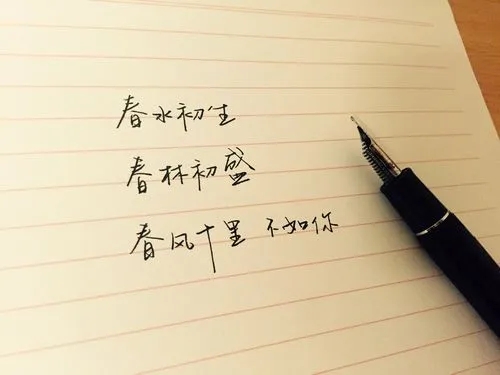 春水初生
春林初盛
春风十里 不如你